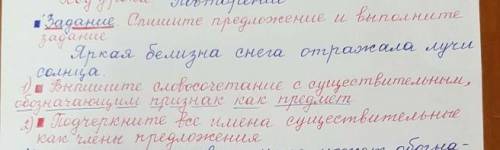 Задание. Спишите предложение и выполните
задание
Яркая белизна снега отражала лучи
солнца.
1) Выпишите словосочетание с существительным,
обозначающим признак как предмет
2) Подчеркните все имена существительные
как члены предложения